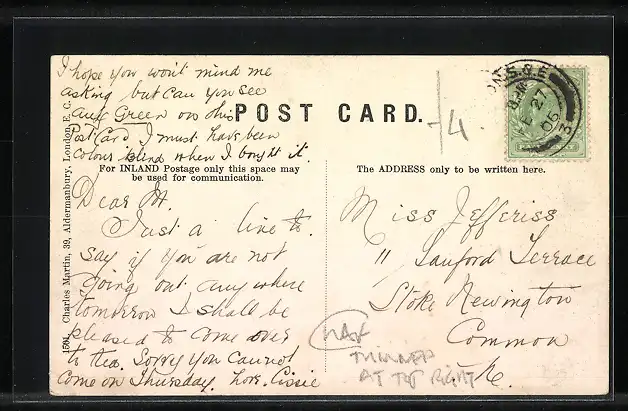 I hope you won't mind me
asking but can you see
any Green on this
Post Card I must have been
colour blind when I bought it.
POST CARD.
For INLAND Postage only this space may
be used for communication.
The ADDRESS only to be written here.
1501. Charles Martin, 39, Aldermanbury, London, E.C.
Dear M.
Just a line to
say if you are not
going out any where
tomorrow I shall be
pleased to come over
to tea. Sorry you cannot
come on Thursday. Love Cissie
/4
S.E.
27
06
3
Miss Jefferiss
11 Sanford Terrace
Stoke Newington
Common
N.
THINNED
AT TOP RIGHT